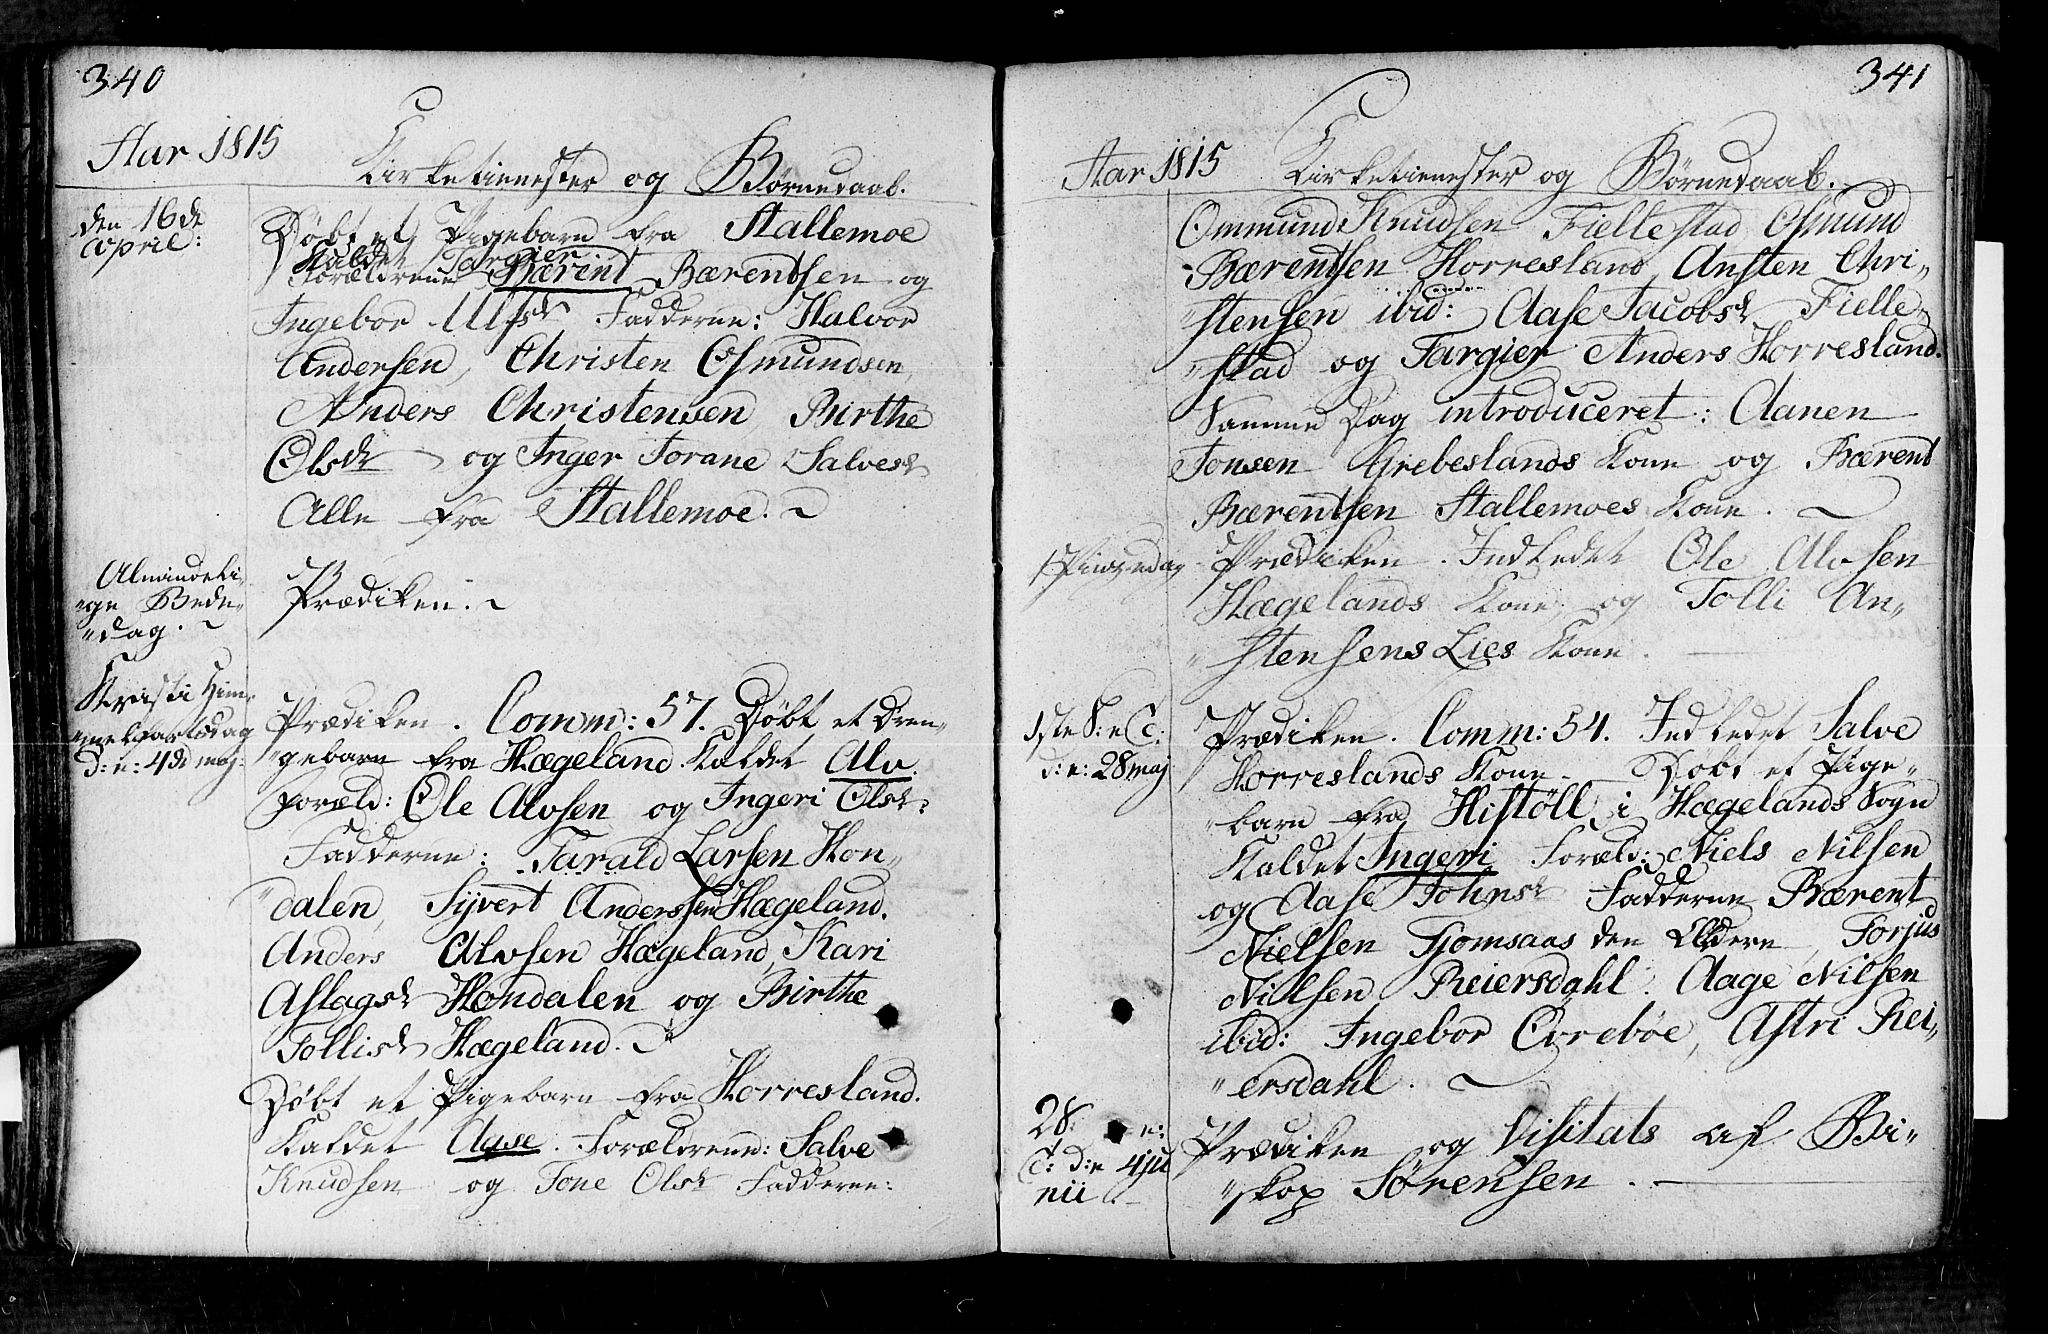 340
Aar 1815
Kirketienester og Börnedaab.
den 16de
April:
Döbt et Pigebarn fra Stallemoe
Kaldet Targier
Forældrene Bærent Bærentsen og
Ingebor Ulfsdr Fadderne: Halvor
Andersen, Christen Osmundsen,
Anders Christensen Birthe
Olsdr og Inger Torane Salvesdr
Alle fra Stallemoe.
Almindeli-
ge Bede-
dag.
Prædiken.
Kristi Him-
melfartsdag
d: e: 4de maj:
Prædiken. Comm: 57. Döbt et Dren-
gebarn fra Hægeland. Kaldet Alv.
Foræld: Ole Alvsen og Ingeri Olsdr:
Fadderne: Tarald Larsen Hon-
dalen, Syvert Anderssen Hægeland.
Anders Alvsen Hægeland, Kari
Aslagsdr Hondalen og Birthe
Tollisdr Hægeland.
Döbt et Pigebarn fra Horresland.
Kaldet Aase. Forældrene: Salve
Knudsen og Tone Olsdr Fadderne:
341
Aar 1815
Kirketienester og Börnedaab.
Ommund Knudsen Fiellestad Osmund
Bærentsen Horresland, Ansten Chri-
stensen ibid: Aase Jacobsdr Fielle-
stad og Targier Anders Horresland.
Samme Dag introduceret: Aanen
Jonsen Grebeslands Kone og Bærent
Bærentsen Stallemoes Kone.
1 Pintsedag
Prædiken. Indledet Ole Alvsen
Hægelands Kone, og Tolli An-
stensens Lies Kone.
1ste S: e T:
d: e: 28 maj
Prædiken. Comm: 54. Indledet Salve
Horreslands Kone. Döbt et Pige-
barn fra Histöll i Hægelands Sogn
Kaldet Ingeri Foræld: Niels Nilsen
og Aase Johnsdr Fadderne Bærent
Nielsen Tjomsaas den Eldere, Torjus
Nielsen Reiersdahl. Aage Nilsen
ibid: Ingebor Övreböe, Astri Rei-
ersdahl.
2 S: e:
T: d: e 4 ju
nii
Prædiken og Visitats af Bi-
skop Sörensen.